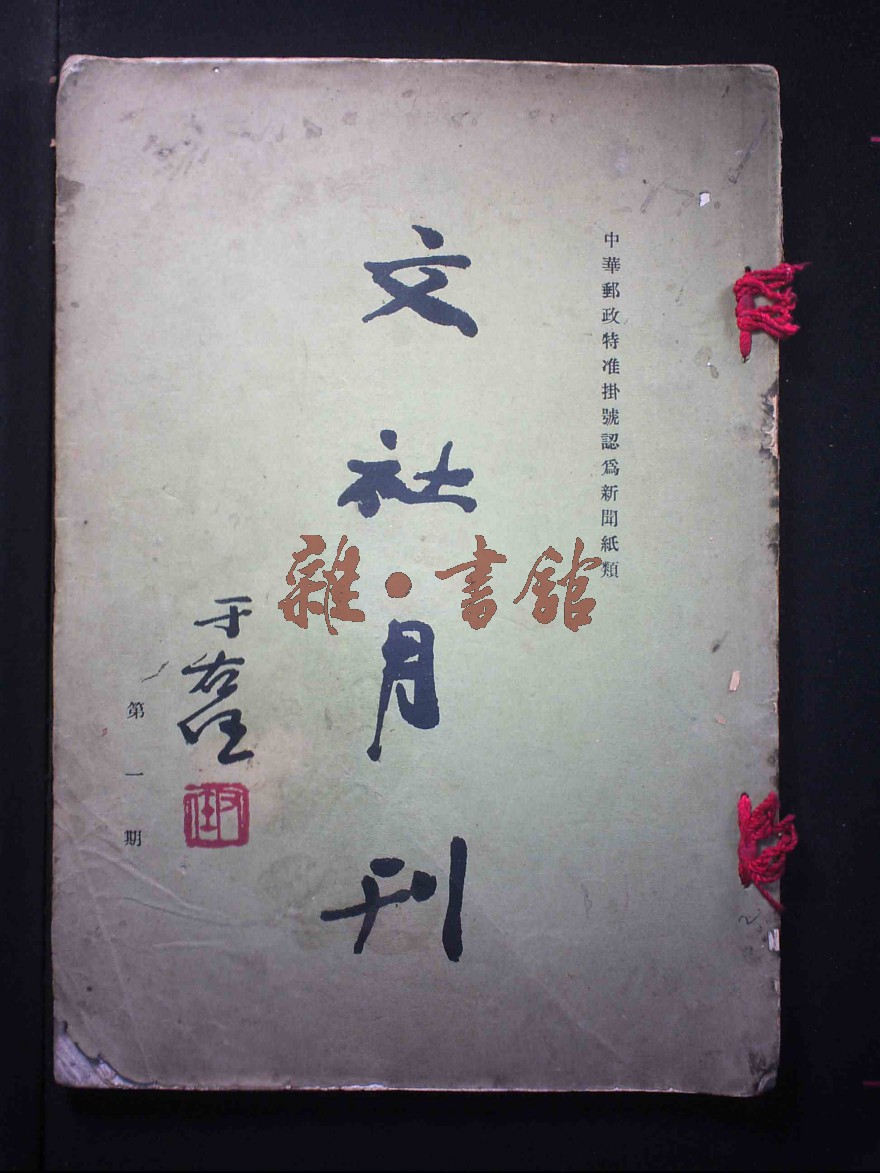 中華郵政特准掛號認爲新聞紙類
文社月刊
于右任
第一期
雜·書館